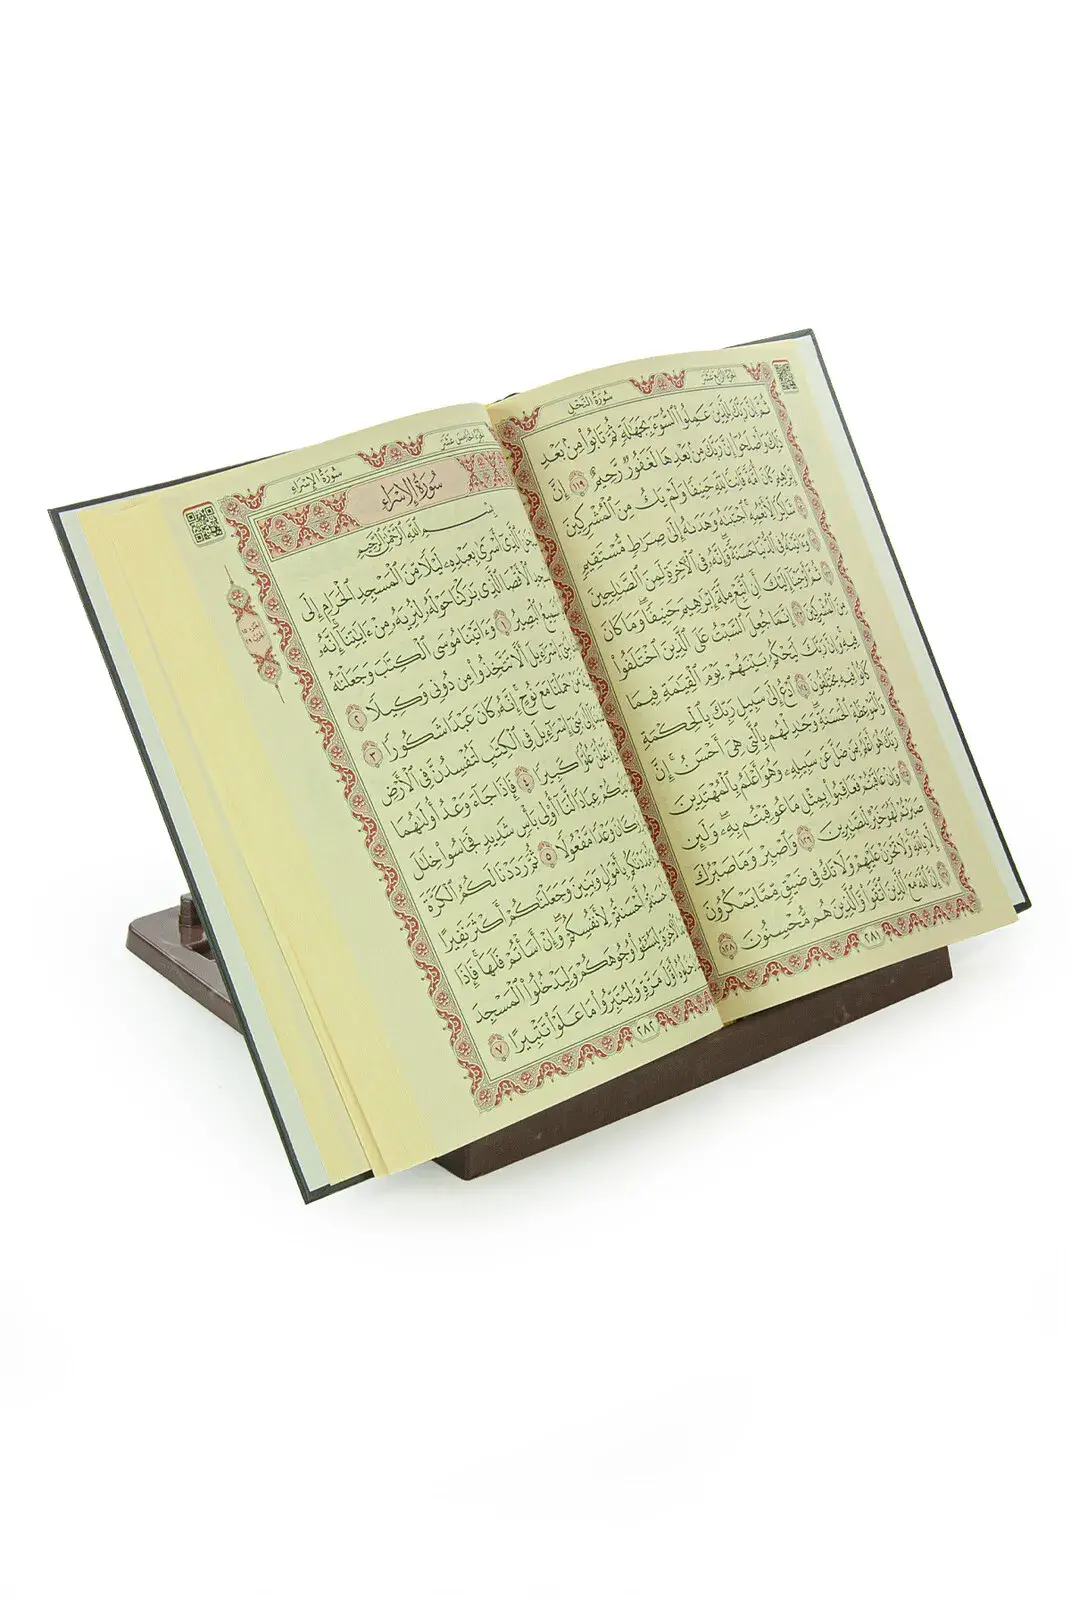 سُورَةُ النَّحْلِ الجُزءُ الرَّابِعُ عَشَرَ
ثُمَّ إِنَّ رَبَّكَ لِلَّذِينَ عَمِلُوا۟ ٱلسُّوٓءَ بِجَهَٰلَةٍ ثُمَّ تَابُوا۟ مِنۢ بَعْدِ
ذَٰلِكَ وَأَصْلَحُوٓا۟ إِنَّ رَبَّكَ مِنۢ بَعْدِهَا لَغَفُورٌ رَّحِيمٌ ١١٩ إِنَّ
إِبْرَٰهِيمَ كَانَ أُمَّةً قَانِتًا لِّلَّهِ حَنِيفًا وَلَمْ يَكُ مِنَ ٱلْمُشْرِكِينَ
١٢٠ شَاكِرًا لِّأَنْعُمِهِ ٱجْتَبَىٰهُ وَهَدَىٰهُ إِلَىٰ صِرَٰطٍ مُّسْتَقِيمٍ
١٢١ وَءَاتَيْنَٰهُ فِى ٱلدُّنْيَا حَسَنَةً وَإِنَّهُۥ فِى ٱلْءَاخِرَةِ لَمِنَ ٱلصَّٰلِحِينَ
١٢٢ ثُمَّ أَوْحَيْنَآ إِلَيْكَ أَنِ ٱتَّبِعْ مِلَّةَ إِبْرَٰهِيمَ حَنِيفًا وَمَا كَانَ
مِنَ ٱلْمُشْرِكِينَ ١٢٣ إِنَّمَا جُعِلَ ٱلسَّبْتُ عَلَى ٱلَّذِينَ ٱخْتَلَفُوا۟
فِيهِ وَإِنَّ رَبَّكَ لَيَحْكُمُ بَيْنَهُمْ يَوْمَ ٱلْقِيَٰمَةِ فِيمَا
كَانُوا۟ فِيهِ يَخْتَلِفُونَ ١٢٤ ٱدْعُ إِلَىٰ سَبِيلِ رَبِّكَ بِٱلْحِكْمَةِ
وَٱلْمَوْعِظَةِ ٱلْحَسَنَةِ وَجَٰدِلْهُم بِٱلَّتِى هِىَ أَحْسَنُ إِنَّ
رَبَّكَ هُوَ أَعْلَمُ بِمَن ضَلَّ عَن سَبِيلِهِۦ وَهُوَ أَعْلَمُ بِٱلْمُهْتَدِينَ
١٢٥ وَإِنْ عَاقَبْتُمْ فَعَاقِبُوا۟ بِمِثْلِ مَا عُوقِبْتُم بِهِۦ وَلَئِن
صَبَرْتُمْ لَهُوَ خَيْرٌ لِّلصَّٰبِرِينَ ١٢٦ وَٱصْبِرْ وَمَا صَبْرُكَ
إِلَّا بِٱللَّهِ وَلَا تَحْزَنْ عَلَيْهِمْ وَلَا تَكُ فِى ضَيْقٍ مِّمَّا يَمْكُرُونَ
١٢٧ إِنَّ ٱللَّهَ مَعَ ٱلَّذِينَ ٱتَّقَوا۟ وَّٱلَّذِينَ هُم مُّحْسِنُونَ ١٢٨
٢٨١
الجُزءُ الخَامِسَ عَشَرَ سُورَةُ الإِسْرَاءِ
سُورَةُ الإِسْرَاءِ
بِسْمِ ٱللَّهِ ٱلرَّحْمَٰنِ ٱلرَّحِيمِ
ٱلَّذِىٓ أَسْرَىٰ بِعَبْدِهِۦ لَيْلًا مِّنَ ٱلْمَسْجِدِ ٱلْحَرَامِ إِلَى
ٱلْأَقْصَا ٱلَّذِى بَٰرَكْنَا حَوْلَهُۥ لِنُرِيَهُۥ مِنْ ءَايَٰتِنَآ إِنَّهُۥ
ٱلْبَصِيرُ ١ وَءَاتَيْنَا مُوسَى ٱلْكِتَٰبَ وَجَعَلْنَٰهُ
إِسْرَٰٓءِيلَ أَلَّا تَتَّخِذُوا۟ مِن دُونِى وَكِيلًا ٢
مَنْ حَمَلْنَا مَعَ نُوحٍ إِنَّهُۥ كَانَ عَبْدًا شَكُورًا ٣
بَنِىٓ إِسْرَٰٓءِيلَ فِى ٱلْكِتَٰبِ لَتُفْسِدُنَّ فِى ٱلْأَرْضِ
عُلُوًّا كَبِيرًا ٤ فَإِذَا جَآءَ وَعْدُ أُولَىٰهُمَا
عِبَادًا لَّنَآ أُو۟لِى بَأْسٍ شَدِيدٍ فَجَاسُوا۟ خِلَٰلَ
وَكَانَ وَعْدًا مَّفْعُولًا ٥ ثُمَّ رَدَدْنَا لَكُمُ ٱلْكَرَّةَ
بِأَمْوَٰلٍ وَبَنِينَ وَجَعَلْنَٰكُمْ أَكْثَرَ نَفِيرًا
أَحْسَنتُمْ لِأَنفُسِكُمْ وَإِنْ أَسَأْتُمْ فَلَهَا فَإِذَا
لِيَسُۥٓـُٔوا۟ وُجُوهَكُمْ وَلِيَدْخُلُوا۟ ٱلْمَسْجِدَ
أَوَّلَ مَرَّةٍ وَلِيُتَبِّرُوا۟ مَا عَلَوْا۟ تَتْبِيرًا ٧
٢٨٢